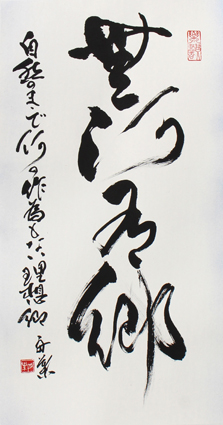 無何有郷
自然のままで何の作為もない理想郷